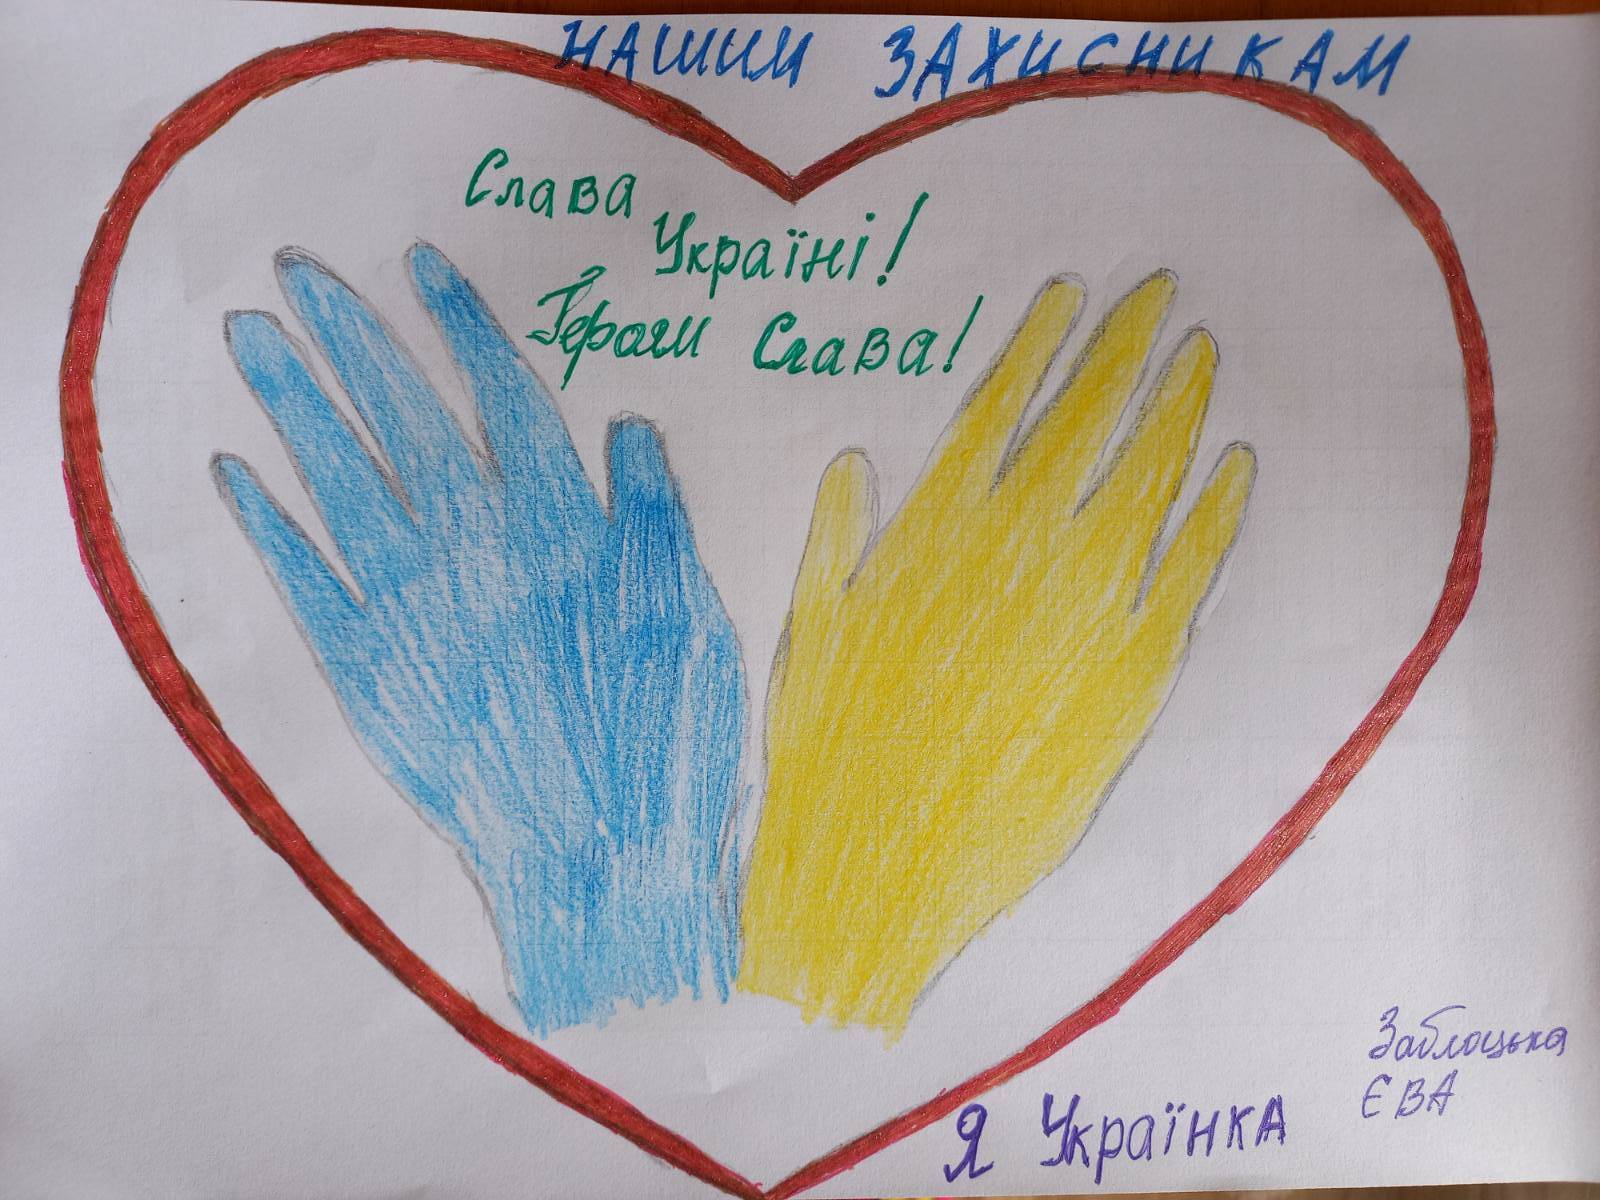 НАШИМ ЗАХИСНИКАМ
Слава
Україні!
Героям Слава!
Заблоцька
ЄВА
Я Українка